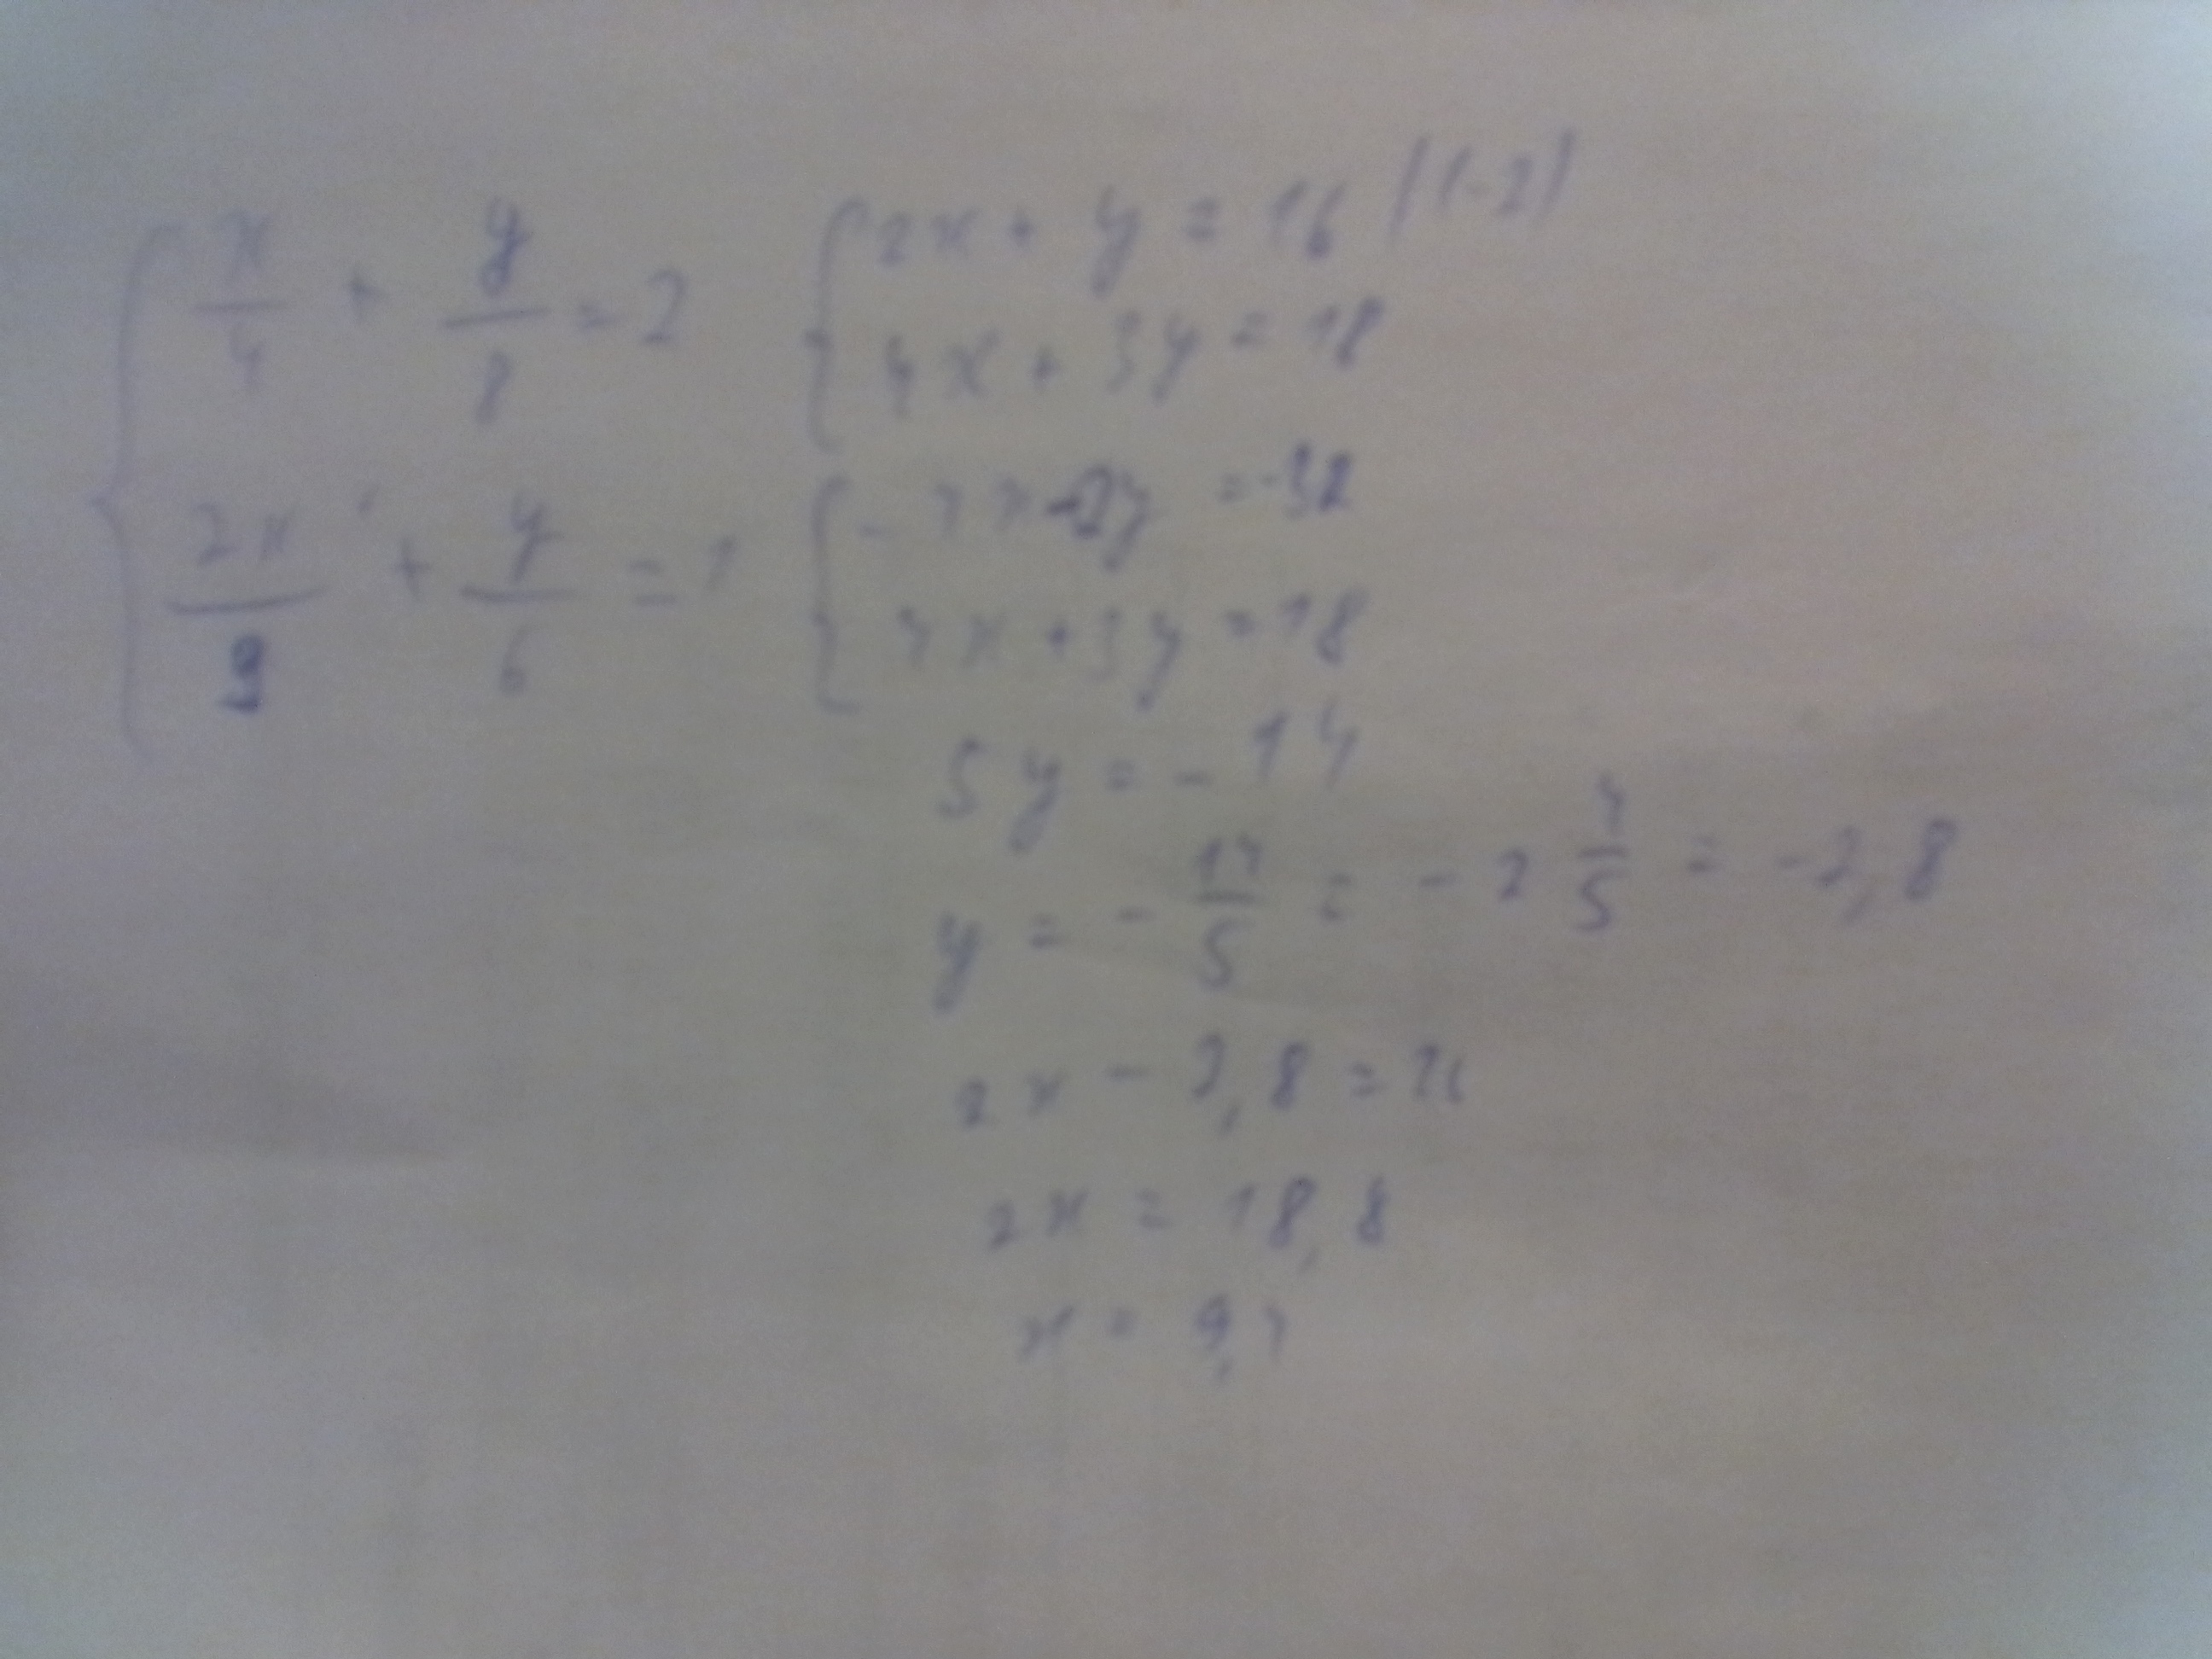 x/4 + y/8 = 2
2x/9 + y/6 = 1
2x + y = 16 |(-2)
4x + 3y = 18
-4x-2y = -32
4x + 3y = 18
5y = -14
y = -14/5 = -2 4/5 = -2,8
2x - 2,8 = 16
2x = 18,8
x = 9,4